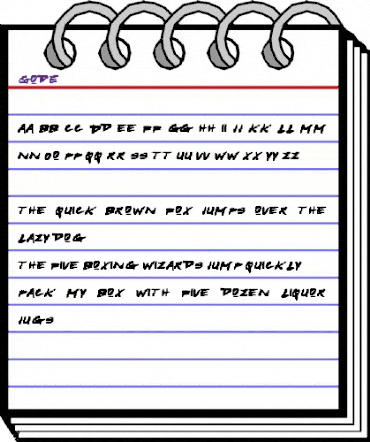 GODE
AA BB CC DD EE FF GG HH II JJ KK LL MM
NN OO PP QQ RR SS TT UU VV WW XX YY ZZ
THE QUICK BROWN FOX JUMPS OVER THE
LAZY DOG
THE FIVE BOXING WIZARDS JUMP QUICKLY
PACK MY BOX WITH FIVE DOZEN LIQUOR
JUGS